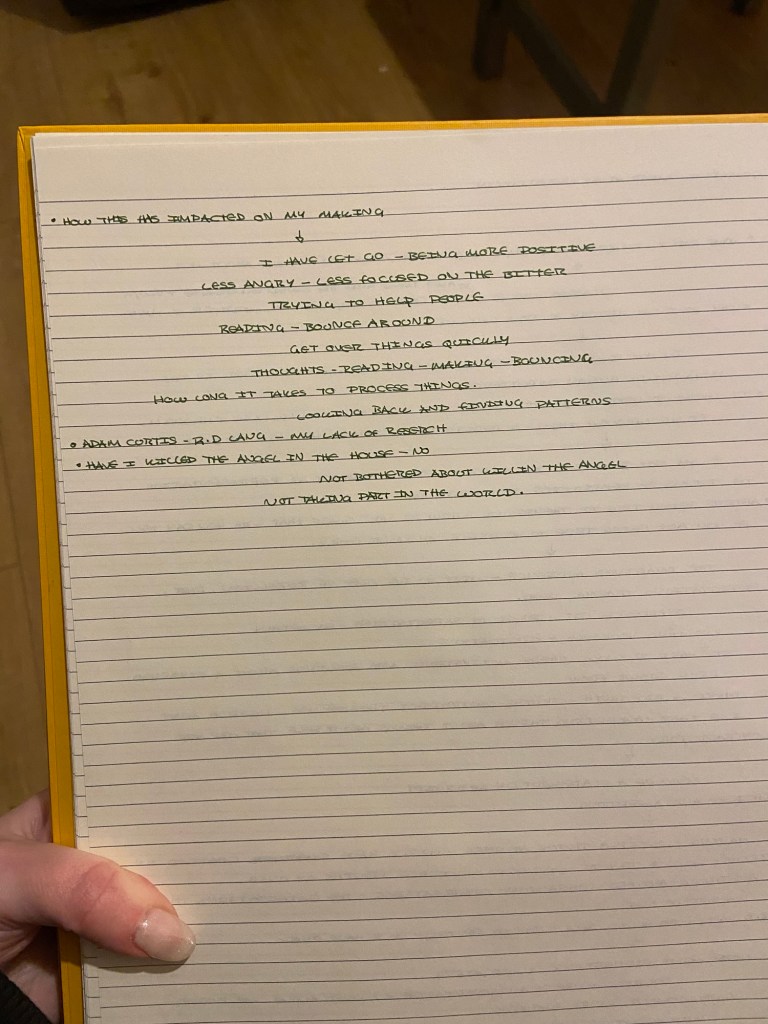 • HOW THIS HAS IMPACTED ON MY MAKING
↓
I HAVE LET GO - BEING MORE POSITIVE
LESS ANGRY - LESS FOCUSED ON THE BITTER
TRYING TO HELP PEOPLE
READING - BOUNCE AROUND
GET OVER THINGS QUICKLY
THOUGHTS - READING - MAKING - BOUNCING
HOW LONG IT TAKES TO PROCESS THINGS.
LOOKING BACK AND FINDING PATTERNS
• ADAM CURTIS - R.D LANG - MY LACK OF
• HAVE I KILLED THE ANGEL IN THE HOUSE - NO
NOT BOTHERED ABOUT KILLIN THE ANGEL
NOT TAKING PART IN THE WORLD.